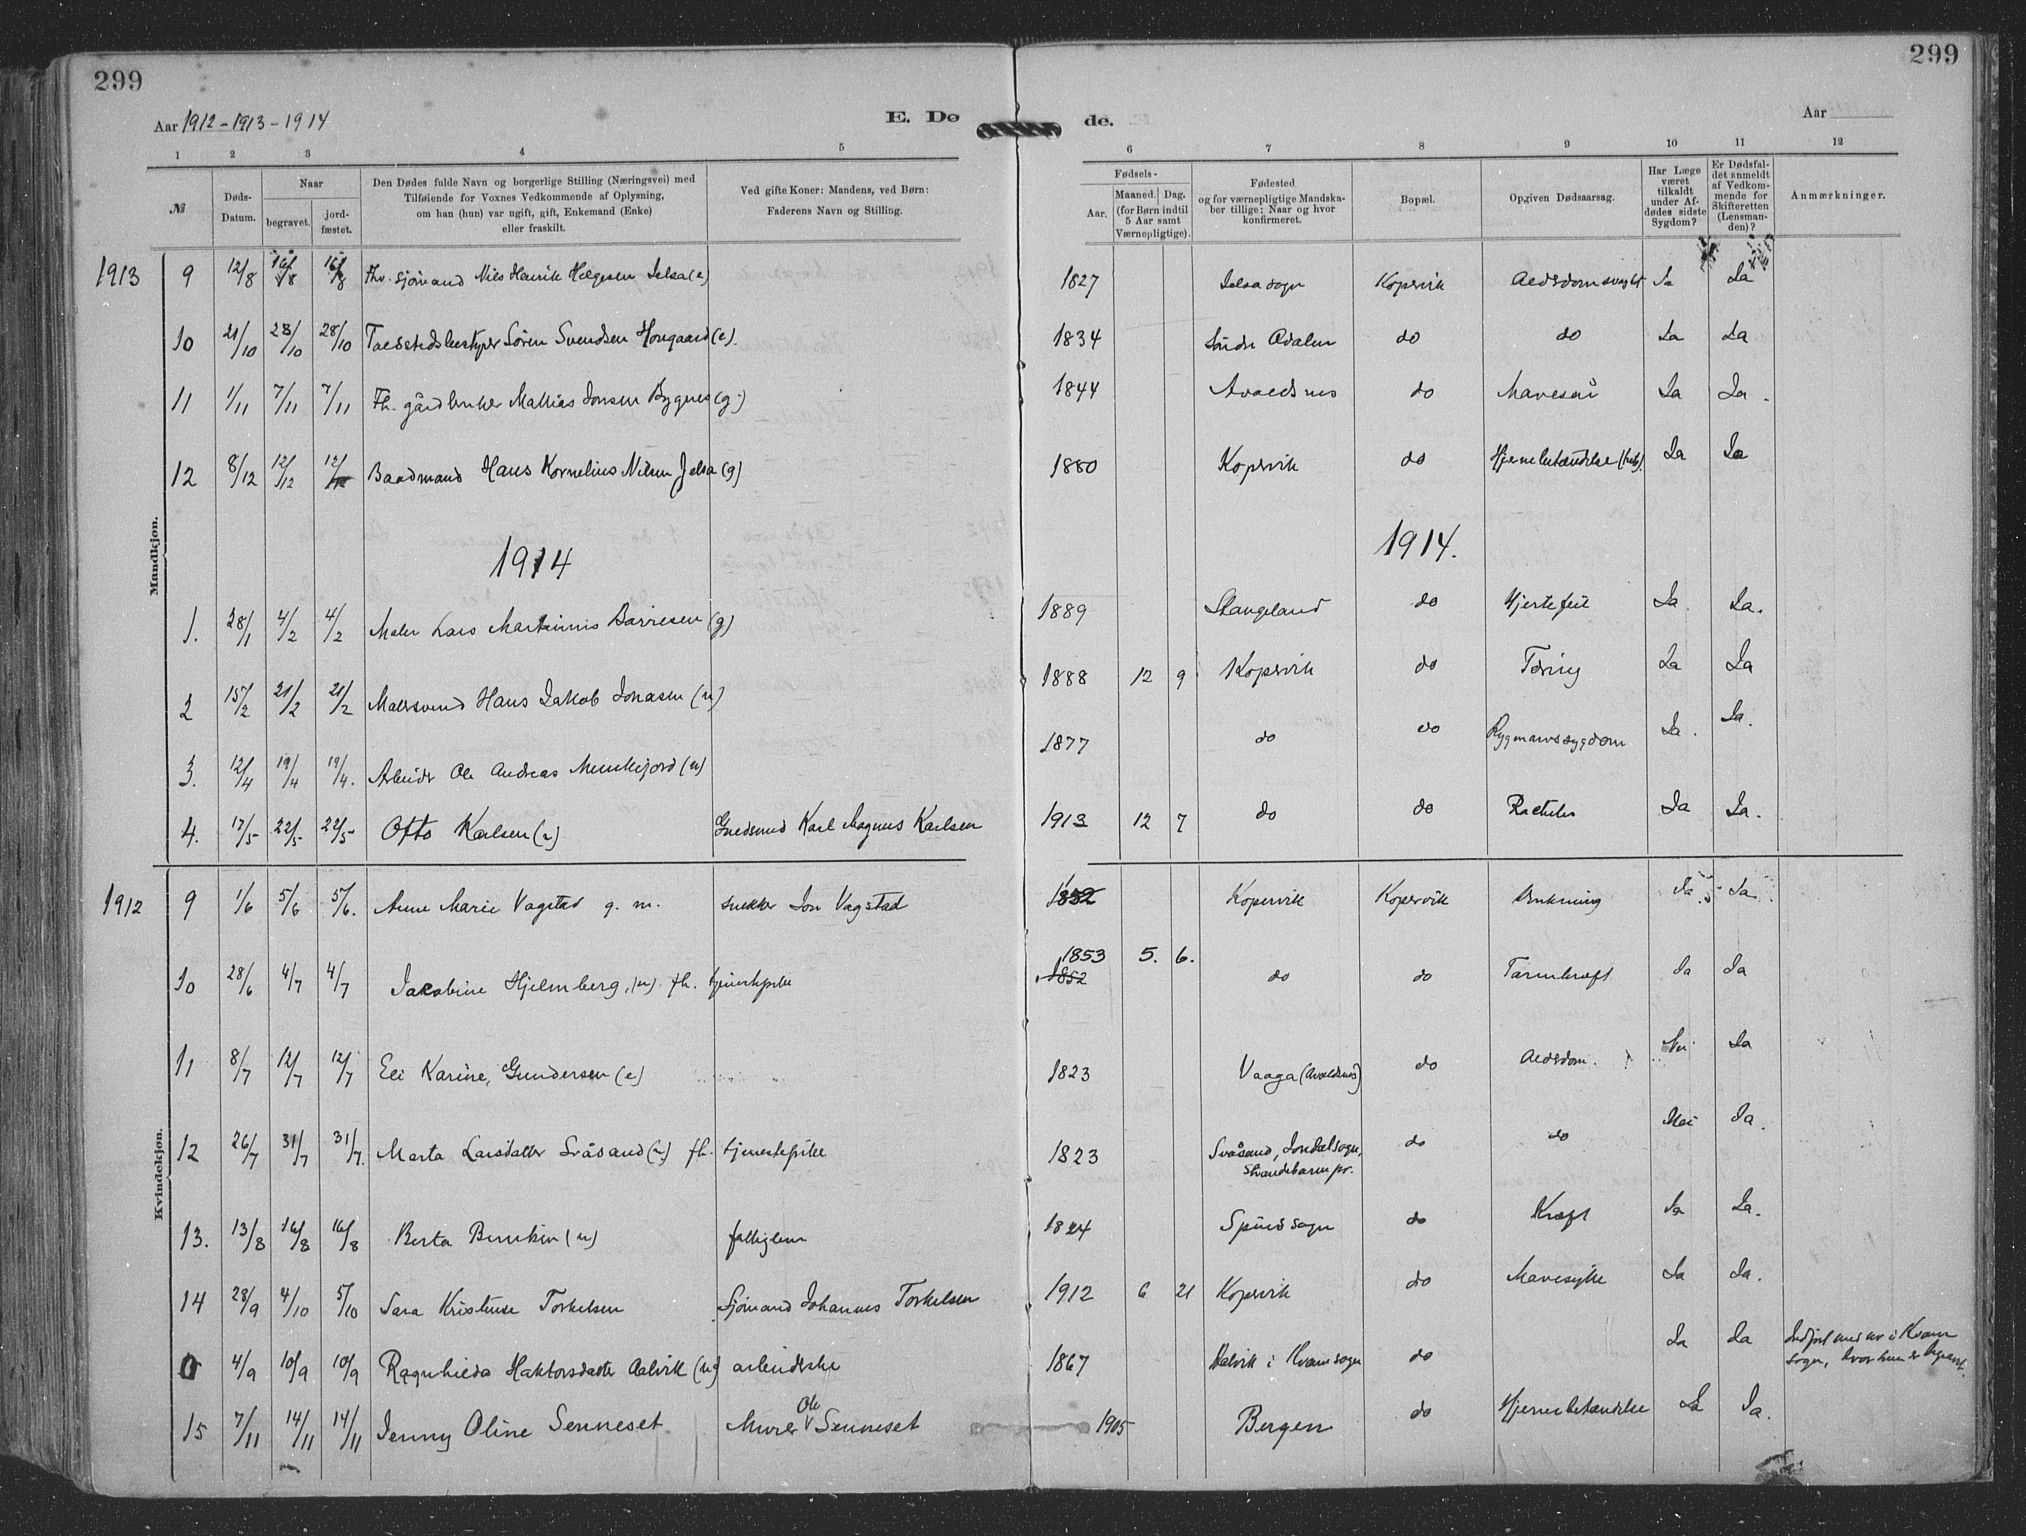 299
299
Aar 1912-1913-1914
E. Dø
de.
Aar
1 2 3 4 5 6 7 8 9 10 11 12
№
Døds-Datum.
Naar
begravet.
jord-fæstet.
Den Dødes fulde Navn og borgerlige Stilling (Næringsvei) med
Tilføiende for Voxnes Vedkommende af Oplysning,
om han (hun) var ugift, gift, Enkemand (Enke)
eller fraskilt.
Ved gifte Koner: Mandens, ved Børn:
Faderens Navn og Stilling.
Fødsels-
Aar.
Maaned. Dag.
(for Børn indtil
5 Aar samt
Værnepligtige).
Fødested
og for værnepligtige Mandska-
ber tillige: Naar og hvor
konfirmeret.
Bopæl.
Opgiven Dødsaarsag.
Har Læge
været
tilkaldt
under Af-
dødes sidste
Sygdom?
Er Dødsfal-
det anmeldt
af Vedkom-
mende for
Skifteretten
(Lensman-
den)?
Anmærkninger.
Mandkjøn.
1913 9 12/8 16/8 16/8 Fhv. sjømand Nils Henrik Helgesen Jelsa (e) 1827 Jelsa sogn Kopervik Alderdomssvaghet Ja Ja
10 21/10 28/10 28/10 Søren Svendsen Hovgaard (e). 1834 Søndre Ådalen do do Ja Ja
11 1/11 7/11 7/11 Fh. gårdbruker Mathias Jonsen Bygnes (g.) 1844 Avaldsnes do Mavesår Ja Ja.
12 8/12 12/12 12/12 Baadmand Hans Kornelius Nilsen Jelsa (g) 1880 Kopervik do Hjernebetændelse (tub). Ja Ja
1914
1914.
1. 28/1 4/2 4/2 Maler Lars Martinius Børresen (g) 1889 Stangeland do Hjertefeil Ja. Ja.
2 15/2 21/2 21/2 Malersvend Hans Jakob Jonasen (u) 1888 12 9 Kopervik do Tæring Ja Ja
3. 12/4 19/4 19/4. Arbeider Ole Andreas Munkejord (u) 1877 do do Rygmarvssygdom Ja. Ja.
4. 17/5 22/5 22/5 Otto Karlsen (u) Karl Magnus Karlsen 1913 12 7 do do Rachitis Ja Ja.
Kvindekjøn.
1912 9 1/6 5/6 5/6. Anne Marie Vagstad g. m. snekker Jon Vagstad 1852 Kopervik Kopervik Ja Ja
10 28/6 4/7 4/7 Jacobine Hjelmberg, (u) fh. tjenestepike 1853 5. 6. 1852 do do Tarmkræft Ja Ja
11 8/7 12/7 12/7 Eli Karine Gundersen (e) 1823 Vaaga (Avaldsnes) do Alderdom. Nei Ja
12 26/7 31/7 31/7. Marta Larsdatter Svåsand (u) fh. tjenestepike 1823 Svåsand, Jondal sogn, do do Nei Ja.
Strandebarm pr.
13. 13/8 16/8 16/8 Berta (u) fattiglem 1824 Spind sogn do Kræft Ja Ja.
14 28/9 4/10 5/10 Sara Kristense Torkelsen Sjømand Johannes Torkelsen 1912 6 21 Kopervik do Mavesyke Ja Ja.
0 4/9 10/9 10/9 Ragnhilda Haktorsdatter Aalvik (u) arbeiderske 1867 Aalvik i Kvam sogn do Ja Ja Indført med nr i Kvam
sogn, hvor hun er begravet.
15 7/11 14/11 14/11 Jenny Oline Senneset Murer Ole Senneset 1905 Bergen do Hjernebetændelse Ja Ja.